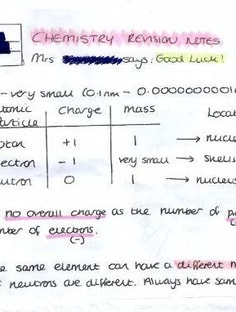 CHEMISTRY REVISION NOTES
Mrs says: Good Luck!
- very small (0.1nm - 0.0000000001
Charge mass
+1 1 → nucle
-1 very small →
0 1 → nucleus
no overall charge as the number of
of electrons.
(-)
same element can have a different n
neutrons are different. Always have sam